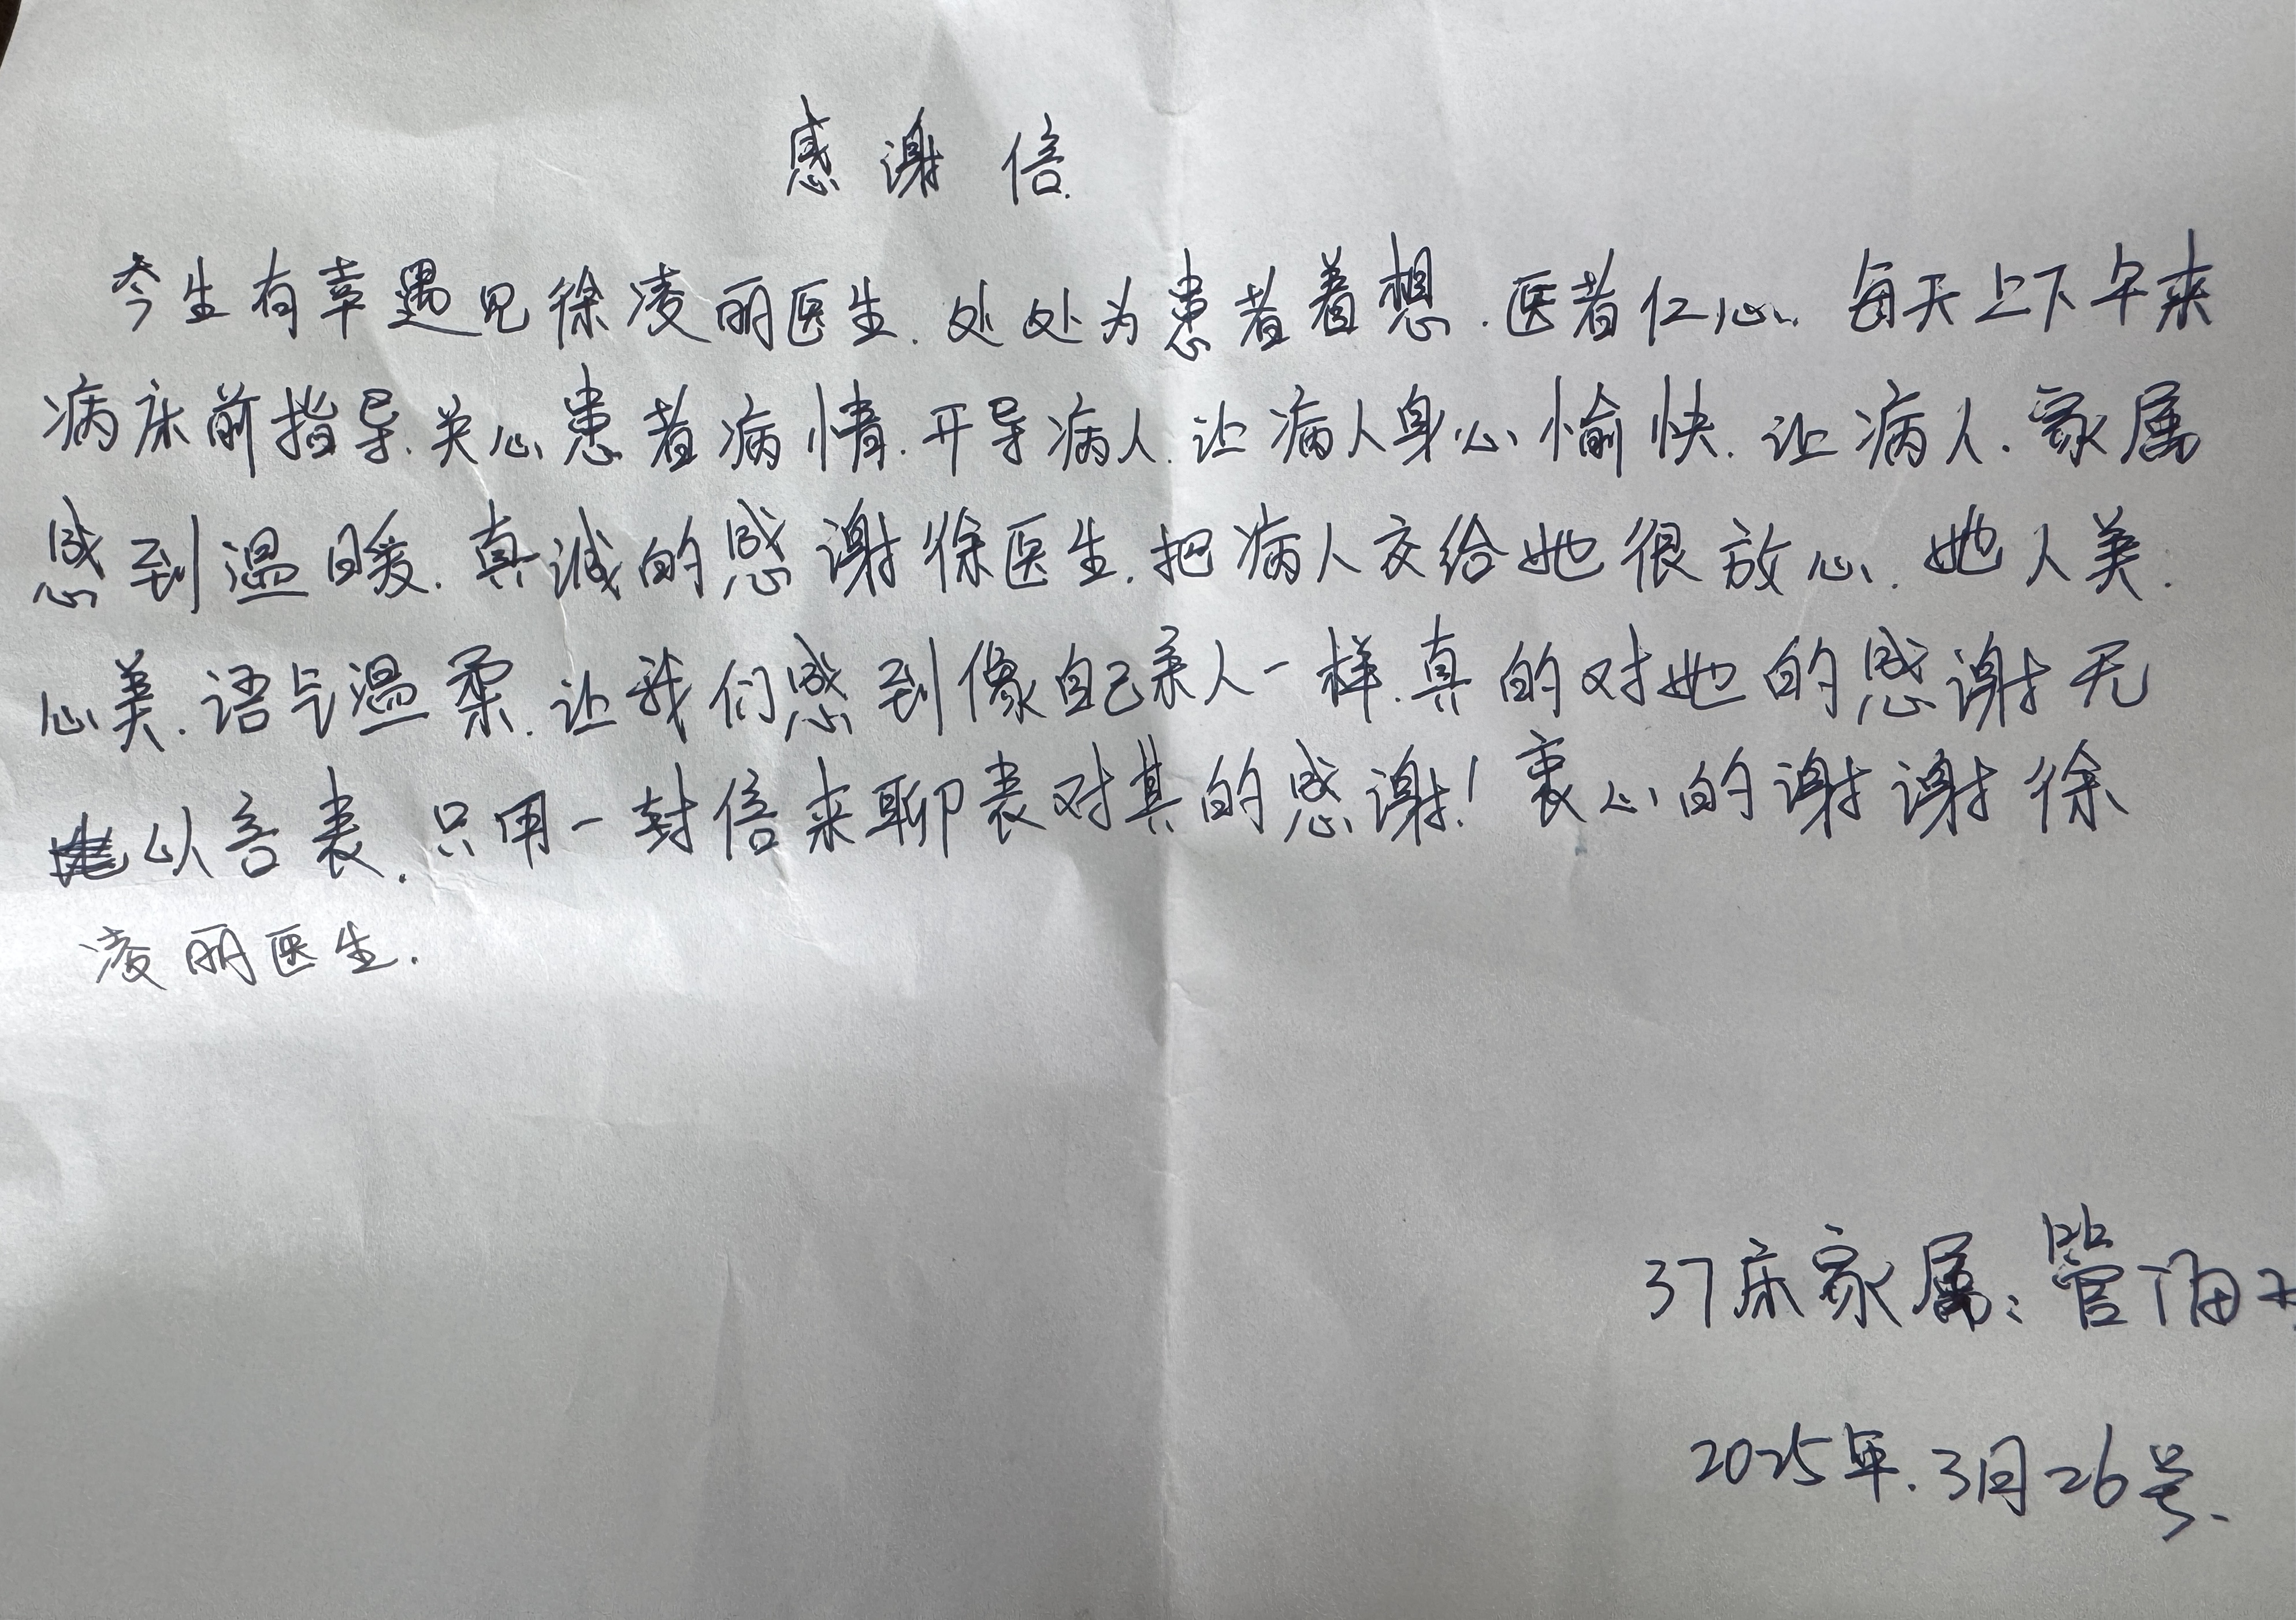 感谢信
今生有幸遇见徐凌丽医生.处处为患者着想.医者仁心.每天上下午来
病床前指导.关心患者病情.开导病人.让病人身心愉快.让病人.家属
感到温暖.真诚的感谢徐医生.把病人交给她很放心.她人美.
心美.语气温柔.让我们感到像自己亲人一样.真的对她的感谢无
以言表.只用一封信来聊表对其的感谢!衷心的谢谢徐
凌丽医生.
37床家属:管
2025年.3月26号.